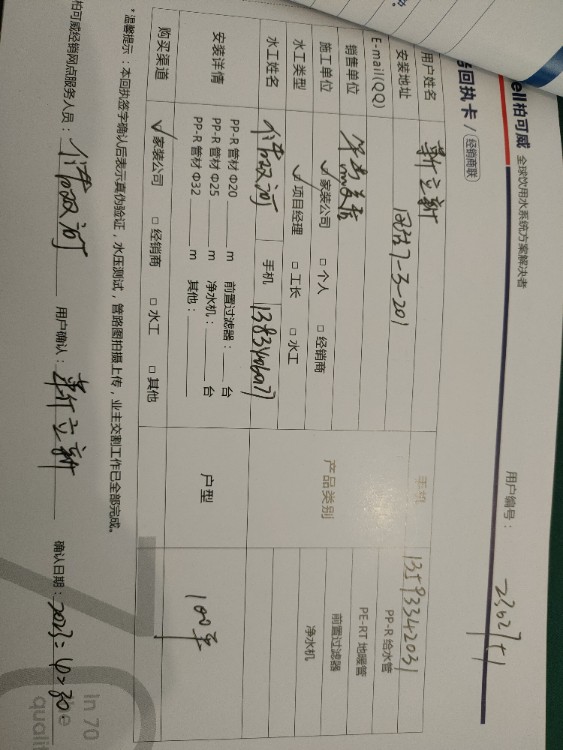 ell柏可威 全球饮用水系统方案解决者
务回执卡 / 经销商联
用户编号：
用户姓名 靳立新 手机 13593342031
安装地址 7-3-201
E-mail(QQ)
销售单位
施工单位 ✓家装公司 □ 个人 □ 经销商
水工类型 ✓项目经理 □ 工长 □ 水工
水工姓名 手机
产品类别 PP-R 给水管
PE-RT 地暖管
前置过滤器
净水机
安装详情 PP-R 管材 Φ20 ____ m 前置过滤器：____ 台
PP-R 管材 Φ25 ____ m 净水机：____ 台
PP-R 管材 Φ32 ____ m 其他：____
户型 100平
购买渠道 ✓家装公司 □ 经销商 □ 水工 □ 其他
*温馨提示：本回执签字确认后表示真伪验证，水压测试，管路图拍摄上传，业主交割工作已全部完成。
柏可威经销网点服务人员： 用户确认：靳立新 确认日期：2023
In 70
qualit